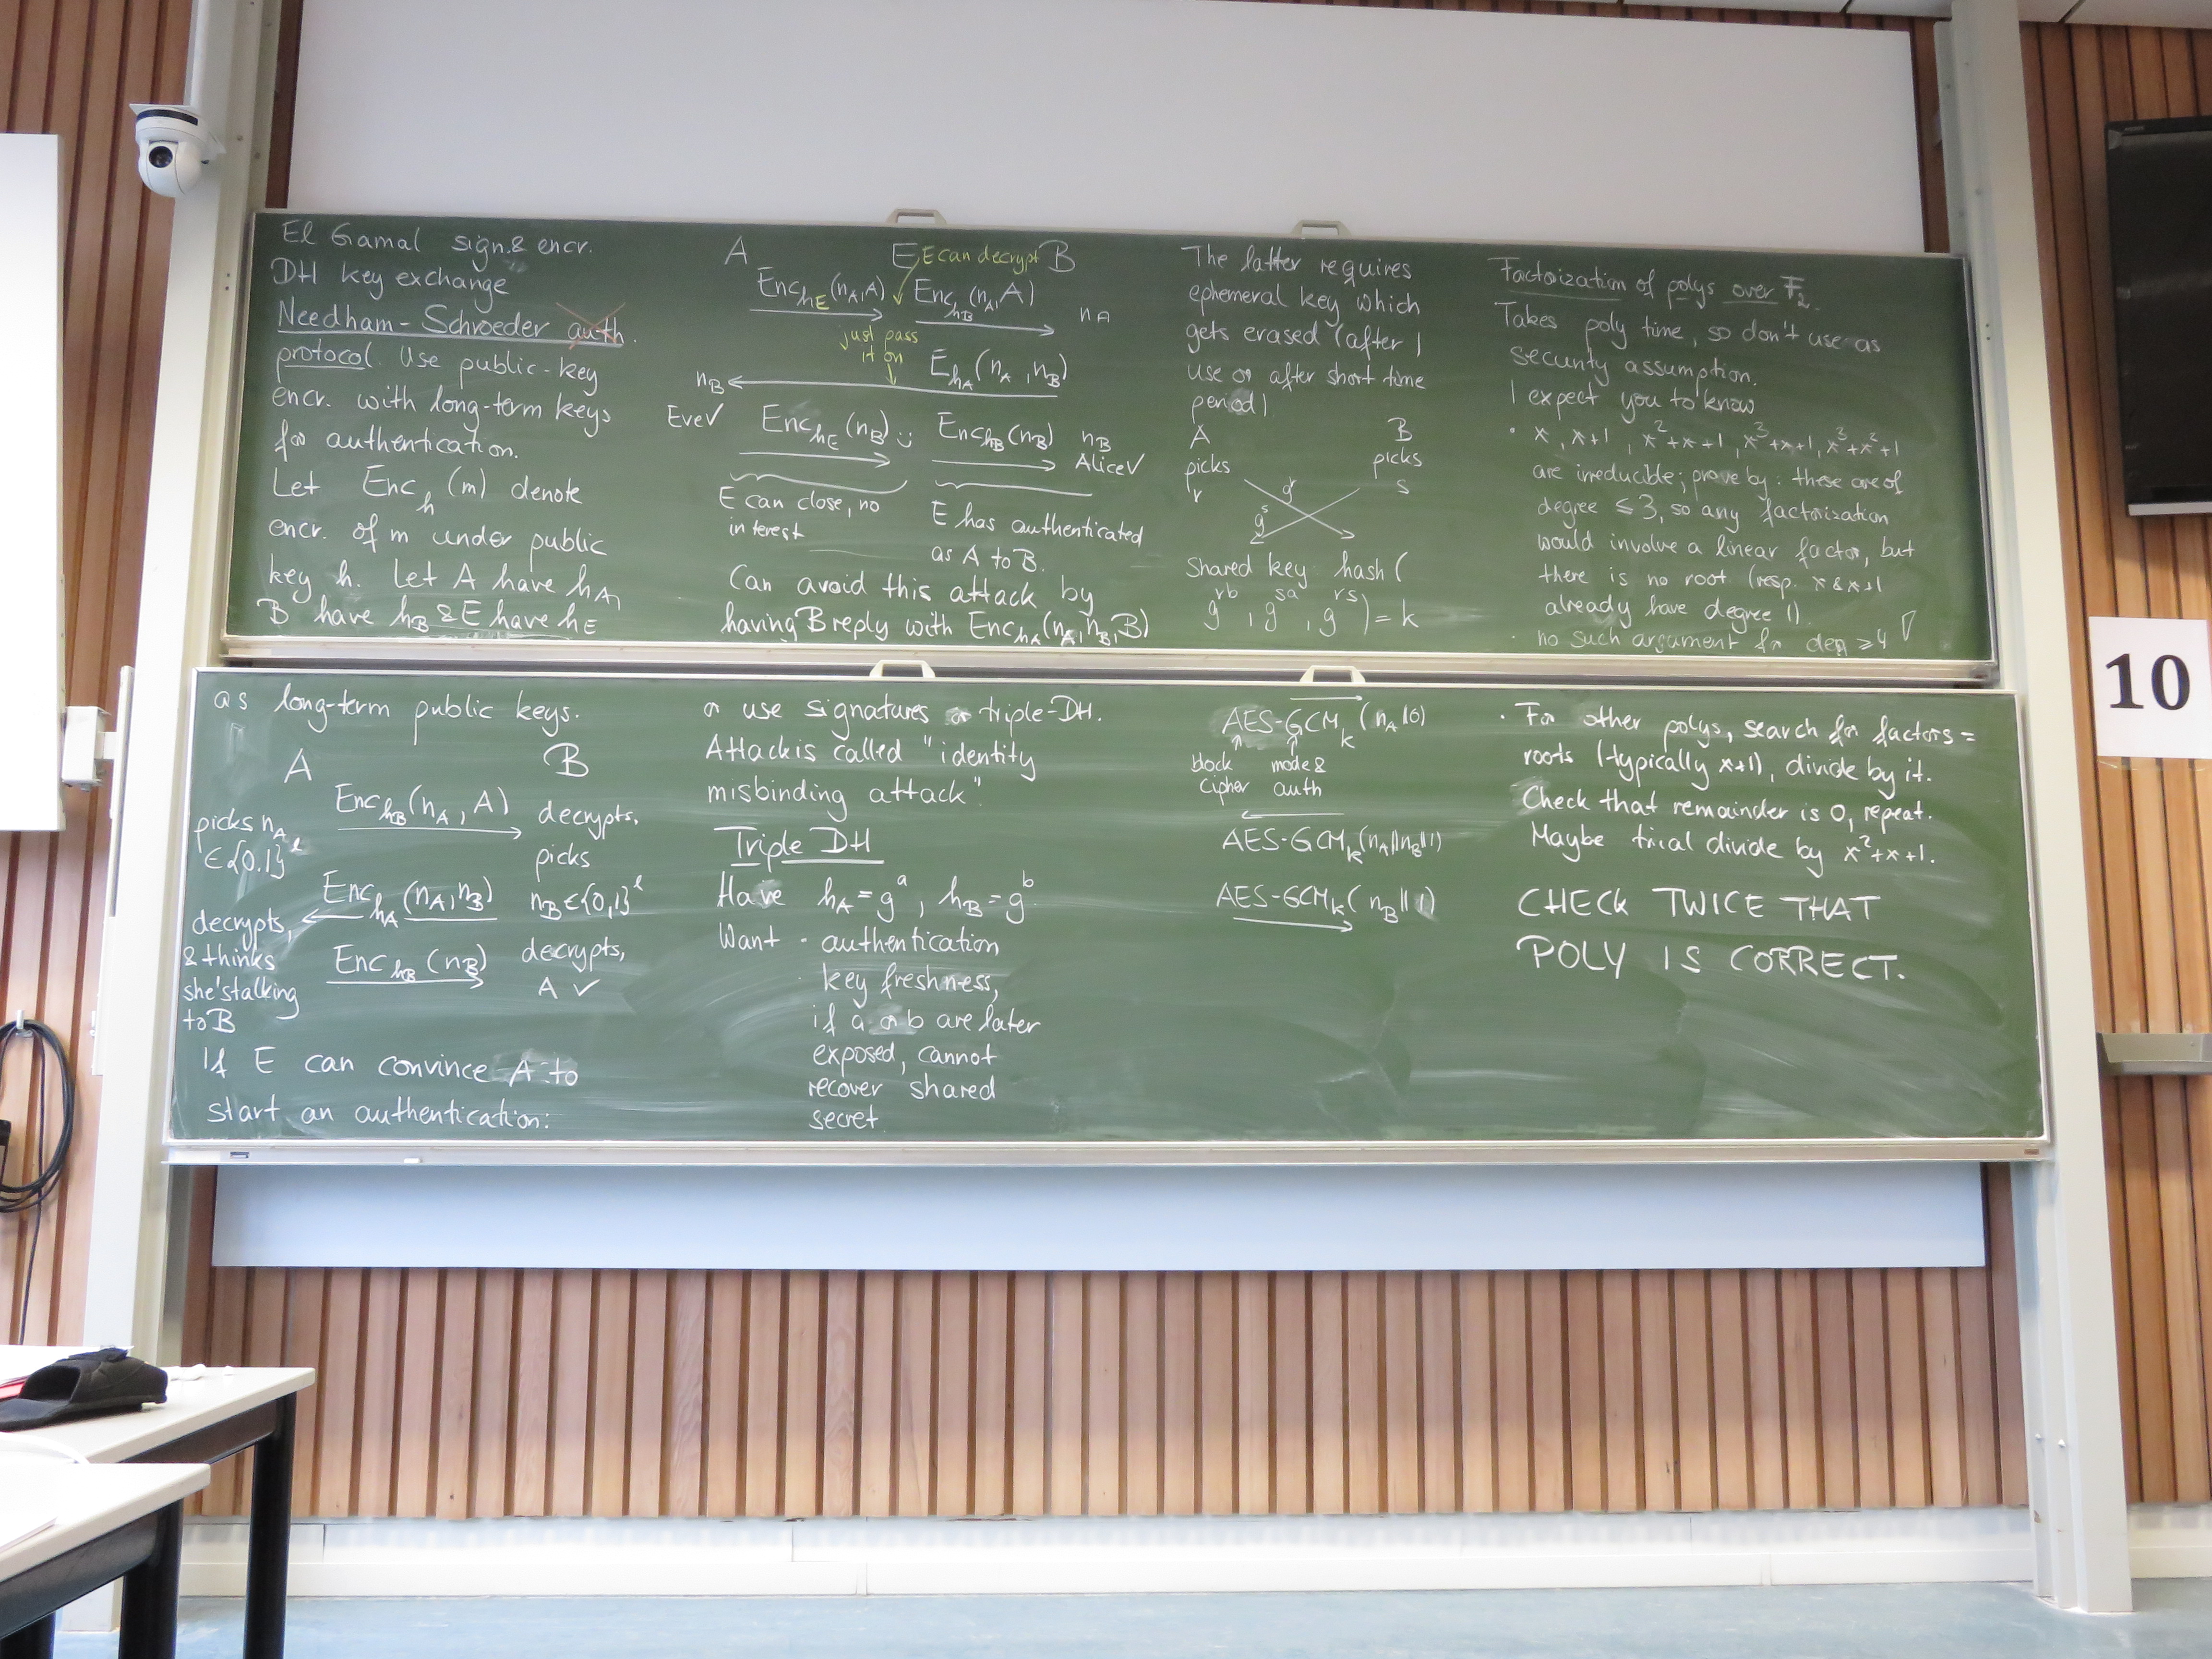 El Gamal sign. & encr.
DH key exchange
Needham-Schroeder auth.
protocol. Use public-key
encr. with long-term keys
for authentication.
Let Enc_h (m) denote
encr. of m under public
key h. Let A have h_A,
B have h_B & E have h_E
as long-term public keys.
A B
Enc_{h_B}(n_A, A)
picks n_A
∈{0,1}^ℓ
decrypts,
picks
n_B∈{0,1}^ℓ
Enc_{h_A}(n_A, n_B)
decrypts,
& thinks
she's talking
to B
Enc_{h_B}(n_B)
decrypts,
A ✓
If E can convince A to
start an authentication:
A E E can decrypt B
Enc_{h_E}(n_A, A) Enc_{h_B}(n_A, A) n_A
just pass
it on
n_B E_{h_A}(n_A, n_B)
Eve✓ Enc_{h_E}(n_B) :) Enc_{h_B}(n_B) n_B
Alice✓
E can close, no
interest
E has authenticated
as A to B.
Can avoid this attack by
having B reply with Enc_{h_A}(n_A, n_B, B)
or use signatures or triple-DH.
Attack is called "identity
misbinding attack".
Triple DH
Have h_A = g^a, h_B = g^b.
Want · authentication
· key freshness,
if a or b are later
exposed, cannot
recover shared
secret
The latter requires
ephemeral key which
gets erased (after 1
use or after short time
period)
A B
picks picks
r s
g^r
g^s
Shared key hash(
g^{rb}, g^{sa}, g^{rs}) = k
AES-GCM_k (n_A||0)
block mode &
cipher auth
AES-GCM_k(n_A||n_B||1)
AES-GCM_k( n_B||1)
Factorization of polys over F_2.
Takes poly time, so don't use as
security assumption.
I expect you to know
· x, x+1, x^2+x+1, x^3+x+1, x^3+x^2+1
are irreducible; prove by: these are of
degree ≤3, so any factorization
would involve a linear factor, but
there is no root (resp. x & x+1
already have degree 1).
· no such argument for deg ≥4
· For other polys, search for factors =
roots (typically x+1), divide by it.
Check that remainder is 0, repeat.
Maybe trial divide by x^2+x+1.
CHECK TWICE THAT
POLY IS CORRECT.
10